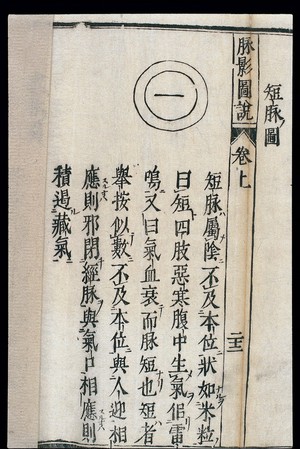 短脉圖
脉影圖說 卷上
短脉屬陰不及本位狀如米粒
曰短四肢惡寒腹中生氣佀雷
鳴又曰氣血衰而脉短也短者
舉按似數不及本位與人迎相
應則邪閉經脉與氣口相應則
積遏藏氣